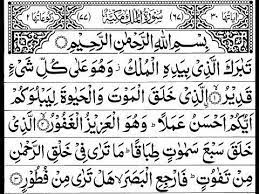 اٰیاتها ٣٠ (٦٧) سُوْرَةُ الْمُلْكِ مَكِّیَّةٌ (٧٧) رکوعاتها ٢
بِسْمِ اللّٰهِ الرَّحْمٰنِ الرَّحِیْمِ
تَبٰرَكَ الَّذِیْ بِیَدِهِ الْمُلْكُ٘ وَهُوَ عَلٰی كُلِّ شَیْءٍ
قَدِیْرُ ۙ۝١ الَّذِیْ خَلَقَ الْمَوْتَ وَالْحَیٰوةَ لِیَبْلُوَكُمْ
اَیُّكُمْ اَحْسَنُ عَمَلًا ؕ وَهُوَ الْعَزِیْزُ الْغَفُوْرُ ۙ۝٢ الَّذِیْ
خَلَقَ سَبْعَ سَمٰوٰتٍ طِبَاقًا ؕ مَا تَرٰی فِیْ خَلْقِ الرَّحْمٰنِ
مِنْ تَفٰوُتٍ ؕ فَارْجِعِ الْبَصَرَ ۙ هَلْ تَرٰی مِنْ فُطُوْرٍ ۝٣